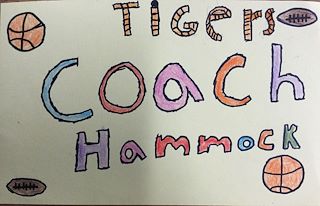 TIgers
Coach
Hammock